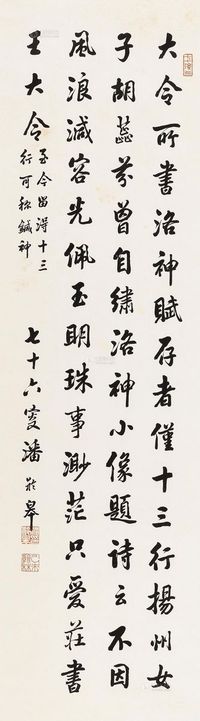 大令所書洛神賦存者僅十三行揚州女
子胡蕊芬曾自繡洛神小像題詩云不因
風浪減容先佩玉明珠事渺茫只愛莊書
王大令至今留得十三
行可稱鍼神
七十六叟潘齡皋